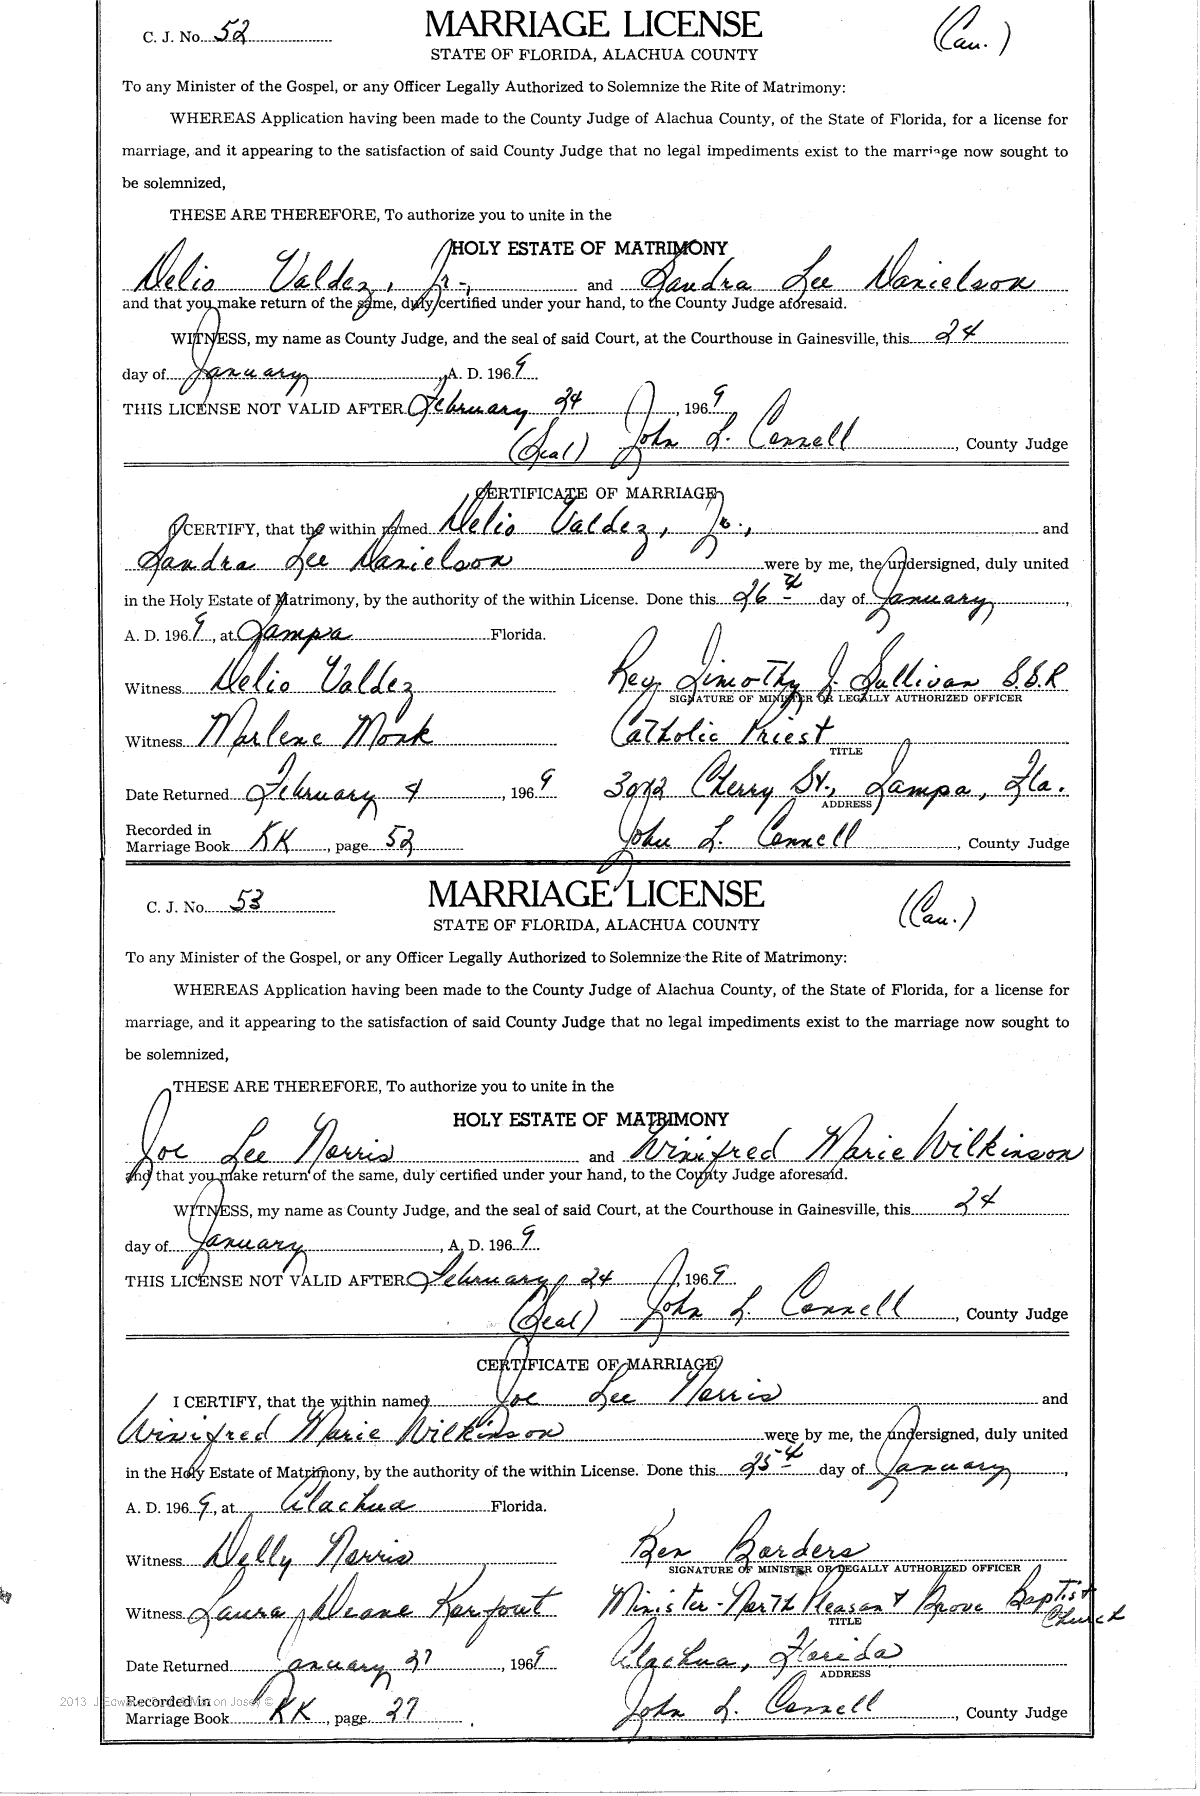 C. J. No. 52
MARRIAGE LICENSE
(Cau.)
STATE OF FLORIDA, ALACHUA COUNTY
To any Minister of the Gospel, or any Officer Legally Authorized to Solemnize the Rite of Matrimony:
WHEREAS Application having been made to the County Judge of Alachua County, of the State of Florida, for a license for
marriage, and it appearing to the satisfaction of said County Judge that no legal impediments exist to the marriage now sought to
be solemnized,
THESE ARE THEREFORE, To authorize you to unite in the
HOLY ESTATE OF MATRIMONY
Delio Valdez, Jr., and Sandra Lee Danielson
and that you make return of the same, duly certified under your hand, to the County Judge aforesaid.
WITNESS, my name as County Judge, and the seal of said Court, at the Courthouse in Gainesville, this 24
day of January, A. D. 1969
THIS LICENSE NOT VALID AFTER February 24, 1969
(Seal) John L. Connell, County Judge
CERTIFICATE OF MARRIAGE
I CERTIFY, that the within named Delio Valdez, Jr., and
Sandra Lee Danielson were by me, the undersigned, duly united
in the Holy Estate of Matrimony, by the authority of the within License. Done this 26th day of January,
A. D. 1969, at Tampa Florida.
Witness Delio Valdez Rev. Timothy J. Sullivan S.S.R
SIGNATURE OF MINISTER OR LEGALLY AUTHORIZED OFFICER
Witness Marlene Monk Catholic Priest
TITLE
Date Returned February 4, 1969 Cherry St., Tampa, Fla.
ADDRESS
Recorded in
Marriage Book KK, page 52 John L. Connell, County Judge
C. J. No. 53
MARRIAGE LICENSE
(Cau.)
STATE OF FLORIDA, ALACHUA COUNTY
To any Minister of the Gospel, or any Officer Legally Authorized to Solemnize the Rite of Matrimony:
WHEREAS Application having been made to the County Judge of Alachua County, of the State of Florida, for a license for
marriage, and it appearing to the satisfaction of said County Judge that no legal impediments exist to the marriage now sought to
be solemnized,
THESE ARE THEREFORE, To authorize you to unite in the
HOLY ESTATE OF MATRIMONY
Joe Lee Norris and Winifred Marie Wilkinson
and that you make return of the same, duly certified under your hand, to the County Judge aforesaid.
WITNESS, my name as County Judge, and the seal of said Court, at the Courthouse in Gainesville, this 24
day of January, A. D. 1969
THIS LICENSE NOT VALID AFTER February 24, 1969
(Seal) John L. Connell, County Judge
CERTIFICATE OF MARRIAGE
I CERTIFY, that the within named Joe Lee Norris and
Winifred Marie Wilkinson were by me, the undersigned, duly united
in the Holy Estate of Matrimony, by the authority of the within License. Done this 25th day of January,
A. D. 1969, at Alachua Florida.
Witness Delly Norris Ben Borders
SIGNATURE OF MINISTER OR LEGALLY AUTHORIZED OFFICER
Witness Laura Deane Minister - North Pleasant Grove Baptist
Church
TITLE
Date Returned January 27, 1969 Alachua, Florida
ADDRESS
Recorded in
Marriage Book KK, page 27 John L. Connell, County Judge
2013 J Edward